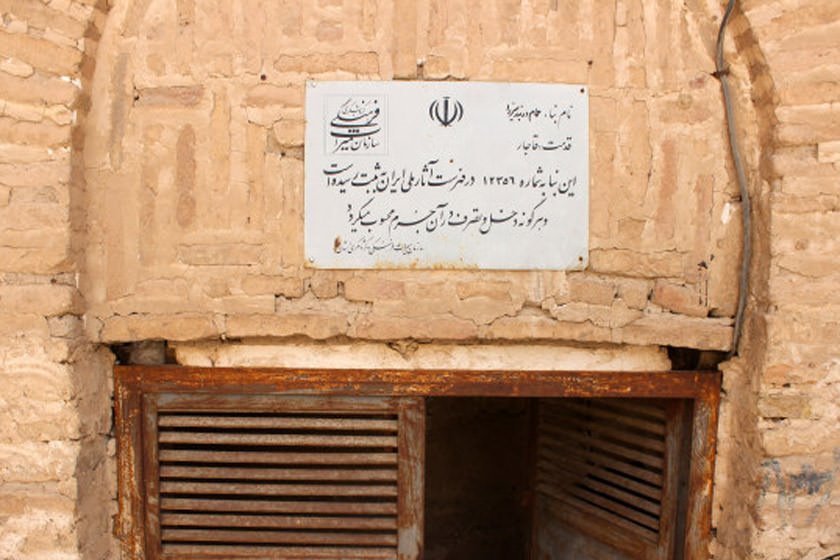 نام بنا، حمام دربند میرزا
قدمت، قاجار
این بنا به شماره ۱۲۳۵۶ در فهرست آثار ملی ایران به ثبت رسیده است
و هرگونه دخل و تصرف در آن جرم محسوب میگردد
سازمان میراث فرهنگی